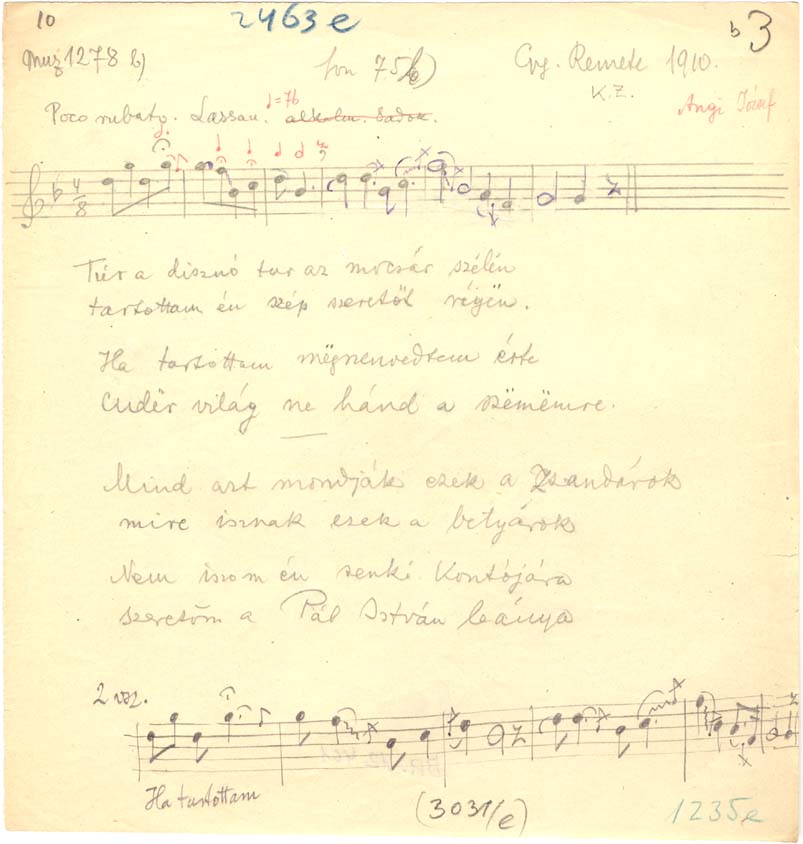 10 2463e b 3
Muz 1278 b) fon 75/b) Gyg. Remete 1910.
K.Z.
Angi József
Poco rubato. Lassan. ♩=76 alkalm. dudok.
4/8
Túr a disznó túr az mocsár szélén
tartottam én szép szeretőt régën.
Ha tartottam mëgnenvedtem érte
Cudër világ ne hánd a szëmëmre.
Mind azt mondják ezek a Zsandárok
mire isznak ezek a betyárok
Nem iszom én senki Kontójára
szeretőm a Pál István leánya
2 vsz.
Ha tartottam
(3031/e) 1235e